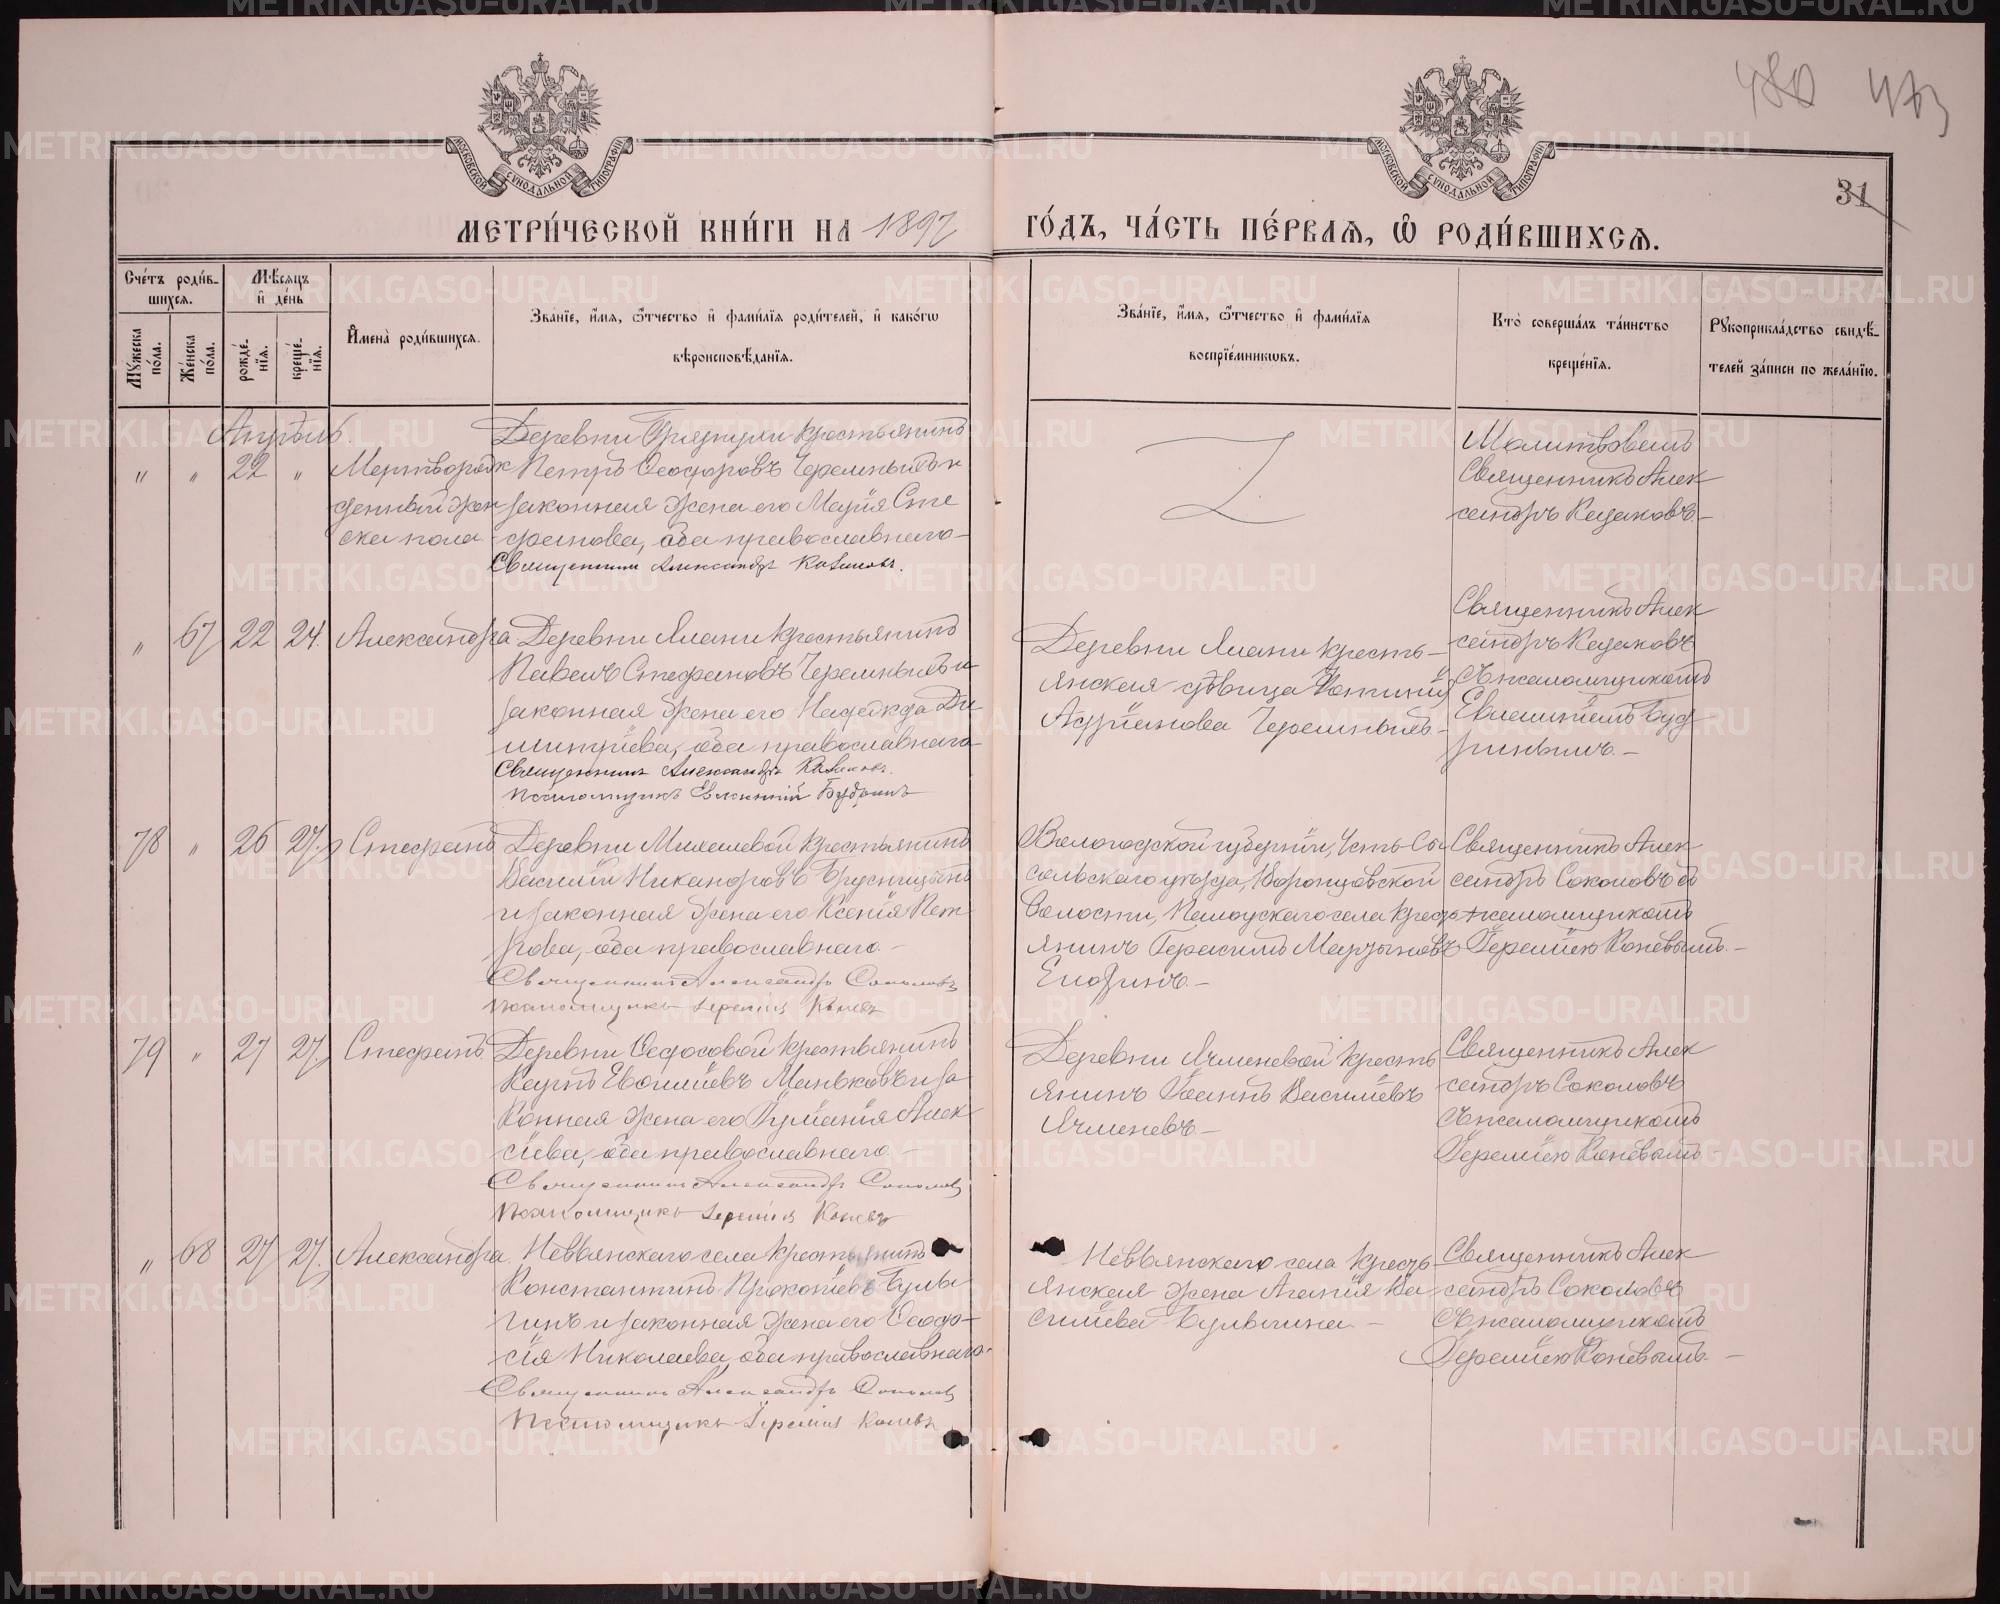 480 473
МОСКОВСКОЙ СУНОДАЛЬНОЙ ТИПОГРАФІИ
МОСКОВСКОЙ СУНОДАЛЬНОЙ ТИПОГРАФІИ
31
МЕТРИ́ЧЕСКОЙ КНИ́ГИ НА 1897 ГО́ДЪ, ЧА́СТЬ ПЕ́РВАѦ, Ѡ РОДИ́ВШИХСѦ.
Сче́тъ роди́в-
шихсѧ.
Мꙋ́жеска по́ла.
Же́нска по́ла.
Мѣ́сѧцъ
и҆ де́нь
рожде́-
нїѧ.
креще́-
нїѧ.
И҆мена̀ роди́вшихсѧ.
Зва́нїе, и҆́мѧ, ѻ҆́тчество и҆ фами́лїѧ роди́телей, и҆ како́гѡ
вѣроисповѣ́данїѧ.
Зва́нїе, и҆́мѧ, ѻ҆́тчество и҆ фами́лїѧ
воспрїе́мникѡвъ.
Кто̀ соверша́лъ та́инство
креще́нїѧ.
Рꙋкоприкла́дство свидѣ́-
телей за́писи по жела́нїю.
Апрѣль.
" " 22 "
Мертворож
денный жен
ска пола
Деревни крестьянинъ
Петръ Ѳеодоровъ Черемныхъ и
законная жена его Марія Сте
фанова, оба православнаго
Священникъ Александръ Казаковъ.
Молитвовалъ
Священникъ Алек
сандръ Казаковъ
" 67 22 24. Александра
Деревни Ялани крестьянинъ
Павелъ Стефановъ Черемныхъ и
законная жена его Надежда Ди
митріева, оба православнаго
Священникъ Александръ Казаковъ.
Псаломщикъ Евлампій Будринъ
Деревни Ялани кресть-
янская дѣвица
Адріанова Черемныхъ
Священникъ Алек
сандръ Казаковъ
съ псаломщикомъ
Евлампіемъ Буд
ринымъ.
78 " 26 27. Стефанъ
Деревни Михалевой крестьянинъ
Василій Никандровъ Брусницынъ
и законная жена его Ксенія Пет
рова, оба православнаго.
Священникъ Александръ Соколовъ
Псаломщикъ Іеремія Коневъ
Вологодской губерніи, Усть-Сы
сольскаго уѣзда, Воронцовской
волости, села крестъ
янинъ Герасимъ Мартыновъ
Священникъ Алек
сандръ Соколовъ съ
псаломщикомъ
Іереміею Коневымъ.
79 " 27 27. Стефанъ
Деревни Ѳедосовой крестьянинъ
Карпъ Маньковъ и за
конная жена его Алек
сіева, оба православнаго.
Священникъ Александръ Соколовъ
Псаломщикъ Іеремія Коневъ
Деревни Ячменевой кресть
янинъ Іоаннъ Василіевъ
Ячменевъ
Священникъ Алек
сандръ Соколовъ
съ псаломщикомъ
Іереміею Коневымъ
" 68 27 27. Александра
Невьянскаго села крестьянинъ
Константинъ Прокопіевъ Булы
гинъ и законная жена его Ѳеодо-
сія Николаева, оба православнаго.
Священникъ Александръ Соколовъ
Псаломщикъ Іеремія Коневъ
Невьянскаго села кресть
янская жена Агапія Ва
силіева Булыгина.
Священникъ Алек
сандръ Соколовъ
съ псаломщикомъ
Іереміею Коневымъ.
METRIKI.GASO-URAL.RU